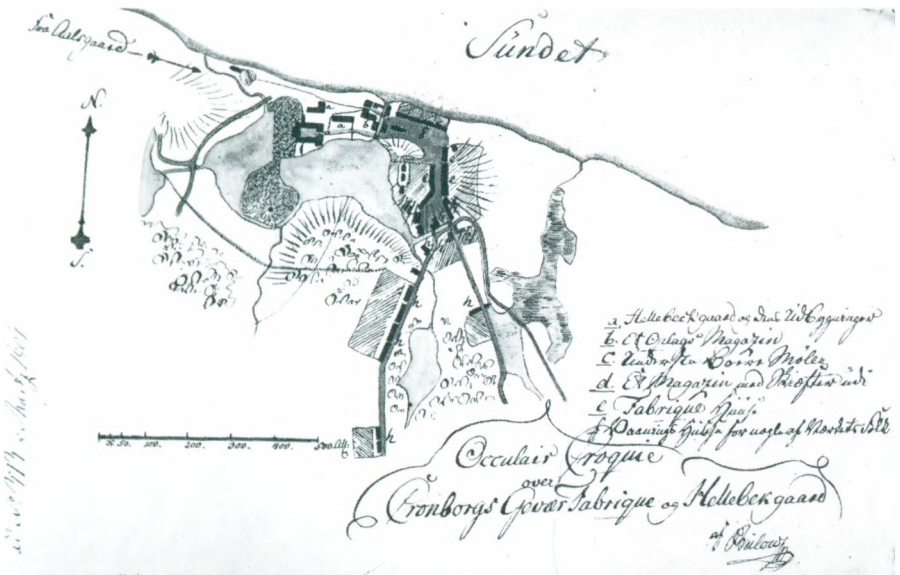 Sundet
Fra Aalsgaard
N.
S.
a Hellebekgaard og dens Udbygninger
b. Et Oplags Magazin
c. Underste Boere Mølle
d. Et Magazin med Skiæfter udi
e Fabrique Huuse
f Vaanings Huuse for nogle af Værkets Folk
50. 100. 200. 300. 400. 500 All:
Occulair Croquie
over
Cronborgs Gevær Fabrique og Hellebekgaard
af Bülow
h
h
h